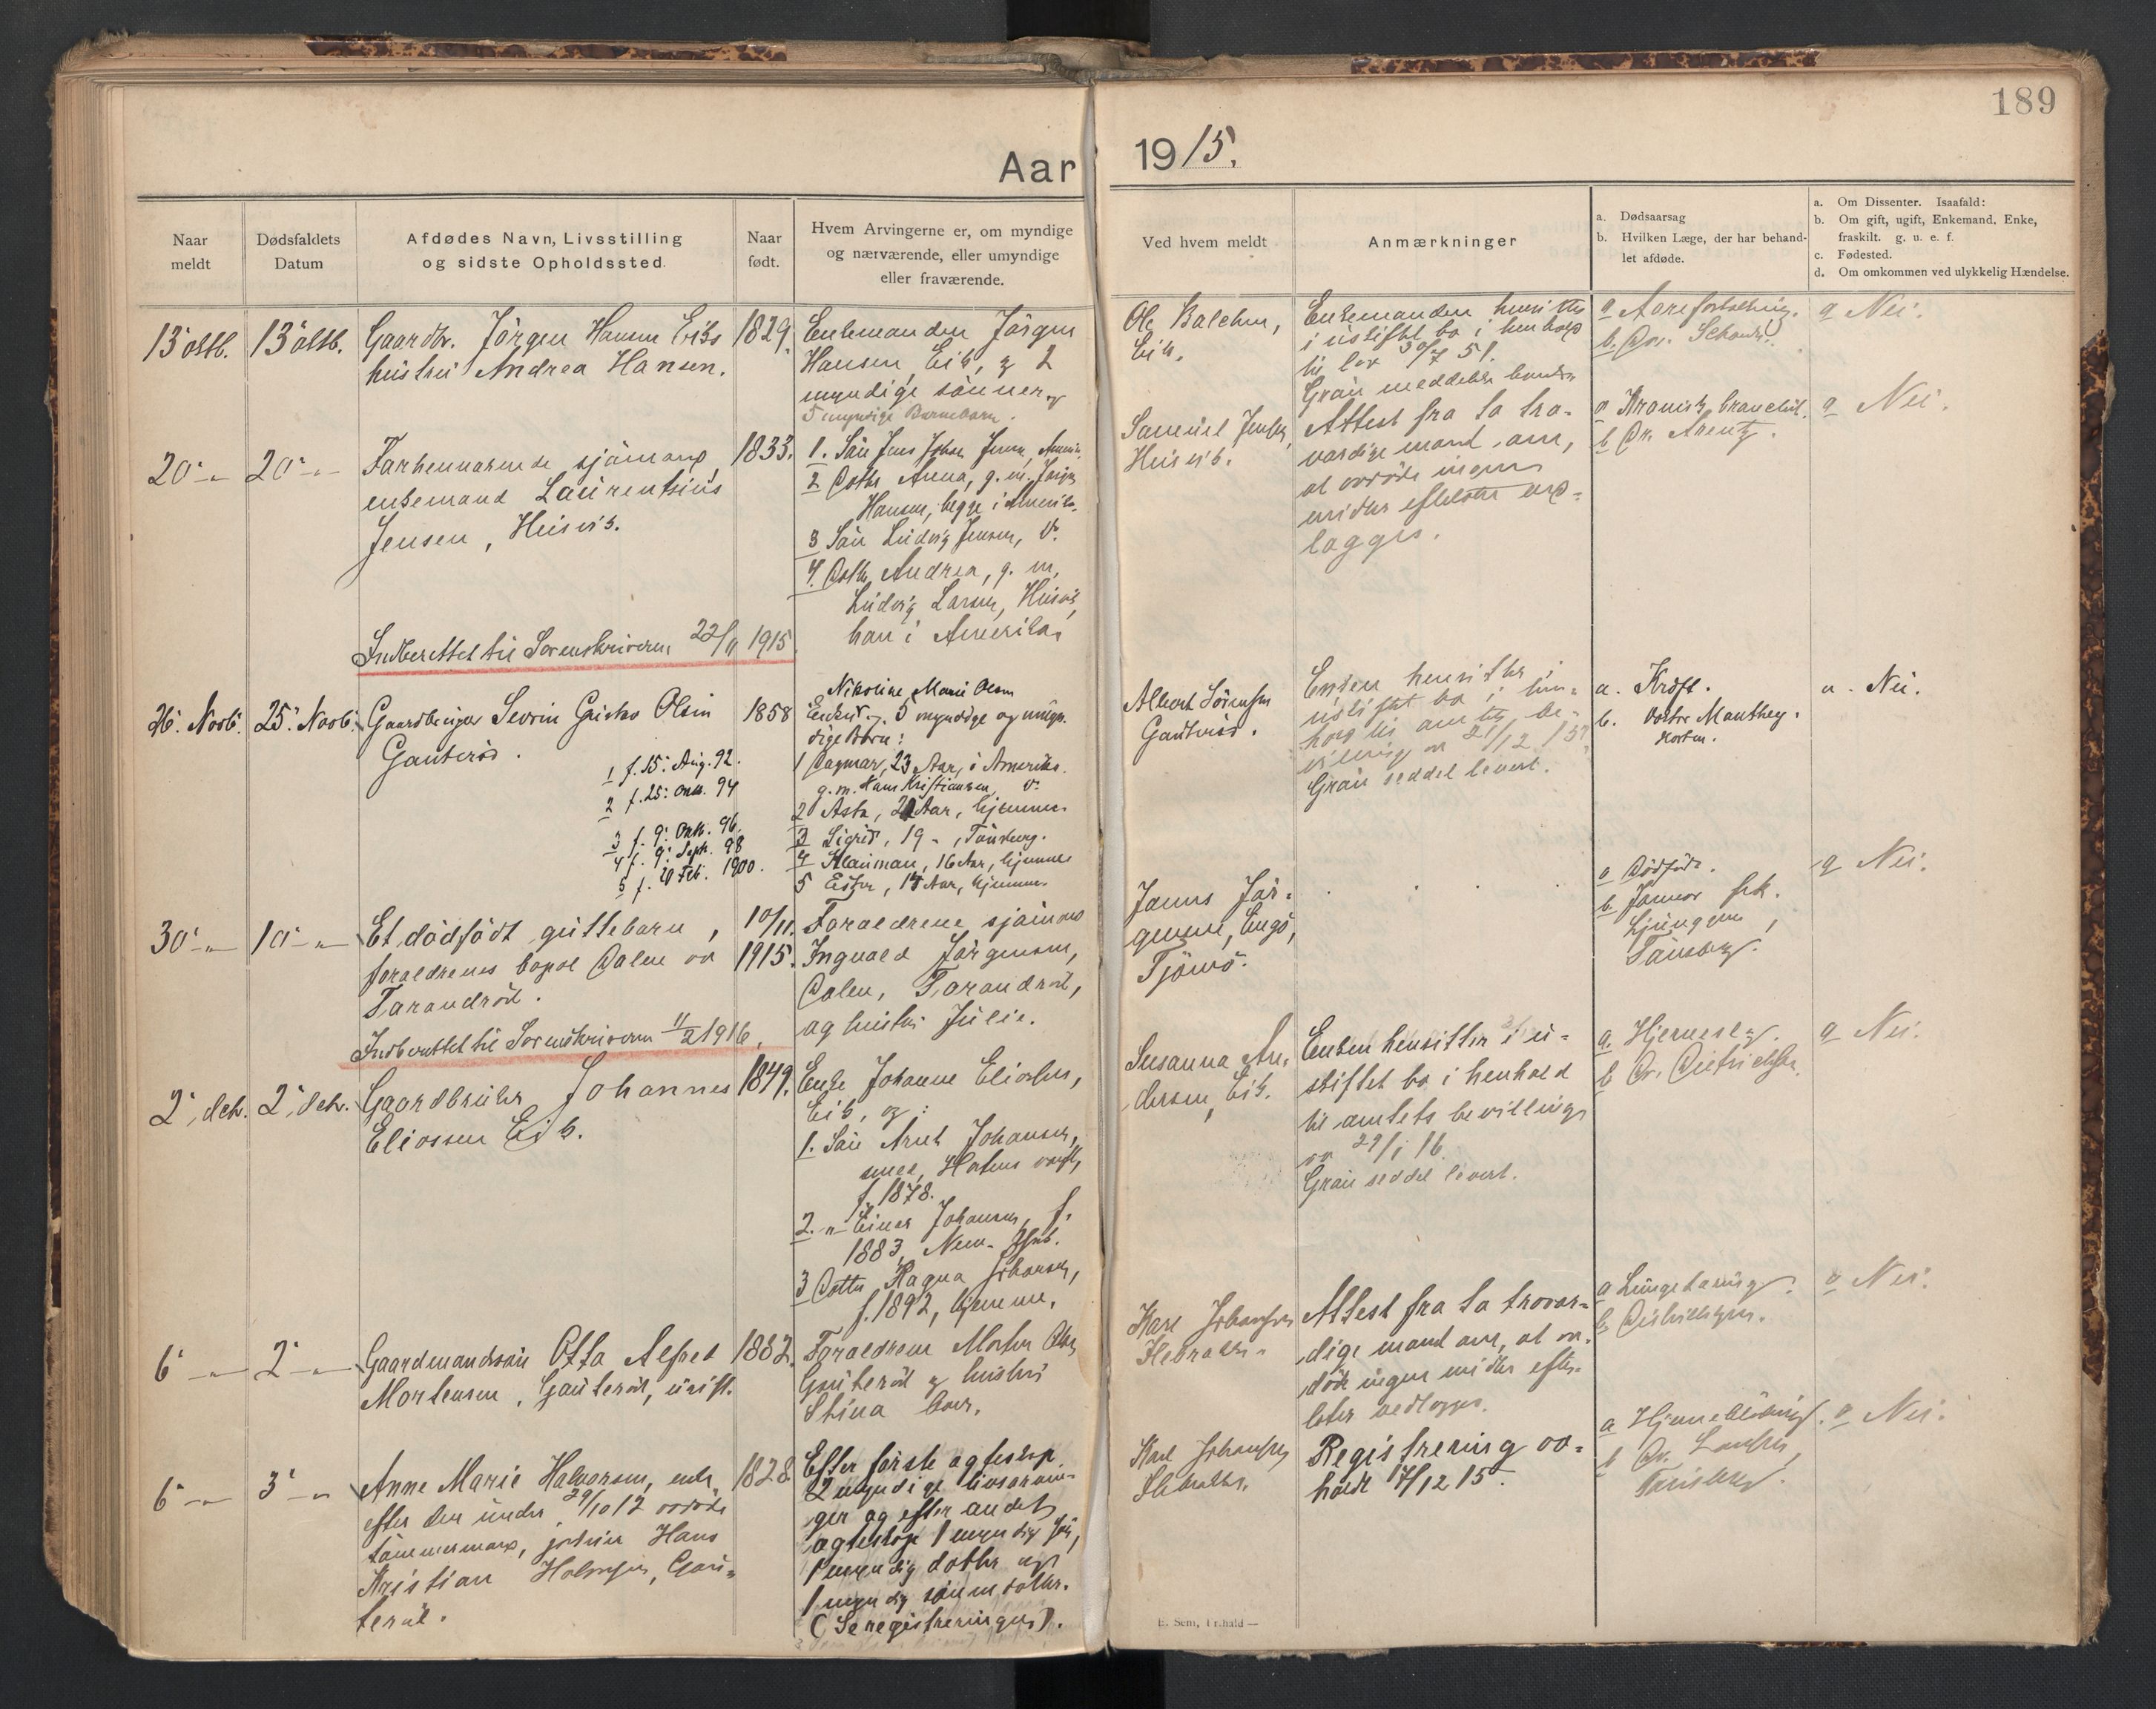 189
Aar 1915.
Naar meldt
Dødsfaldets Datum
Afdødes Navn, Livsstilling og sidste Opholdssted.
Naar født.
Hvem Arvingerne er, om myndige og nærværende, eller umyndige eller fraværende.
Ved hvem meldt
Anmærkninger
a. Dødsaarsag
b. Hvilken Læge, der har behandlet afdøde.
a. Om Dissenter. Isaafald:
b. Om gift, ugift, Enkemand, Enke, fraskilt. g. u. e. f.
c. Fødested.
d. Om omkommen ved ulykkelig Hændelse.
13' oktb.
13' oktb.
Gaardbr. Jörgen Hansen Eiks
hustru Andrea Hansen.
1829.
Enkemanden Jörgen
Hansen, Eik, og 2
myndige sönner og
5 myndige Barnebarn.
Ole
Eik.
Enkemanden hensitter
i uskiftet bo i henhold
til lov 30/7 51.
Graa meddelelse
a
b. Dr.
a Nei.
20' - " -
20' - " -
Forhenværende sjömand,
enkemand Laurentsius
Jensen, Husvik.
1833.
1. Sön Jens Johan Jensen, Amerika
2 Dotter Anna, g. m. Jörgen
Hansen, begge i Amerika.
3 Sön Ludvig Jensen, do.
4. Dotter Andrea, g. m.
Ludvig Larsen, Husvik,
han i Amerika.
Samuel Jensen,
Husvik.
Attest fra to tro-
værdige mænd om,
at avdöde ingen
midler efterlot ved-
lægges.
a Kronisk
b Dr. Arentz.
a Nei.
Indberettet til Sorenskriveren 22/11 1915.
26' Novb.
25' Novb.
Gaardbruger Severin Gustav Olsen
Gauteröd.
1 f. 15' Aug. 92.
2 f. 25' 94
3 f. 9' Oktb. 96.
4 f. 9' Sept. 98
5 f. 20 Feb. 1900.
1858
Nikoline Marie Olsen
Enken og 5 myndige og umyn-
dige Børn:
1 Dagmar, 23 Aar, i Amerika.
g. m. Hans Kristiansen, do.
2 Asta, 21 Aar, hjemme.
3 Sigrid, 19 - , Tönsberg.
4 16 Aar, hjemme
5 Ester, 15 Aar, hjemme.
Albert Sörensen
Gauteröd.
Enken hensitter i
uskiftet bo i hen-
hold til amtets be-
villing av 21/12 15.
Graa seddel levert.
a. Kræft.
b. Doktor Manthey.
Horten.
a. Nei.
30' - " -
10' - " -
Et dödfödt guttebarn,
foreldrenes bopæl Dalen av
Torandröd.
10/11.
1915.
Foreldrene sjömand
Ingvald Jörgensen,
Dalen, Torandröd,
og hustru Julie.
Janus Jör-
gensen,
Tjömö.
a Dödfödt.
b. Jormor frk.
Ljunggren,
Tönsberg.
a Nei.
Indberettet til Sorenskriveren 11/2 1916.
2' deb.
2' deb.
Gaardbruker Johannes
Eliassen Eik.
1849.
Enke Johanne Eliasen,
Eik, og:
1. Sön Johansen,
Hortens verft,
f. 1878.
2. - " - Einar Johansen, f.
1883,
3 Dotter Ragna Johansen,
f. 1892, hjemme.
Susanna An-
dersen, Eik.
Enken hensitter i u-
skiftet bo i henhold
til amtets bevilling
av 29/1 16.
Graa seddel levert.
a.
b Dr. Dietrichson.
a Nei.
6' - " -
2' - " -
Gaardmandssön Otto Alfred
Mortensen, Gauteröd, ugift.
1882.
Foreldrene Morten
Gauteröd og hustru
Stina
Karl Johansen
Attest fra to trovær-
dige mænd om, at av-
döde ingen midler efter-
loter vedlægges.
a Lungetæring.
b Dietrichson.
a Nei.
6' - " -
3' - " -
Anne Marie Halvorsen, enke
efter den under 29/10 12 avdöde
tömmermand, Hans
Kristian Halvorsen, Gau-
teröd.
1828.
Efter förste ægteskap
2 myndige livsarvin-
ger og efter andet
ægteskap 1 myndig sön,
1 myndig dotter og
1 myndig sönnedotter.
(Se registreringen).
Karl Johansen
Registrering av-
holdt 17/12 15.
a
b Dr.
Tönsberg.
a Nei.
E. Sem, Fr.hald —